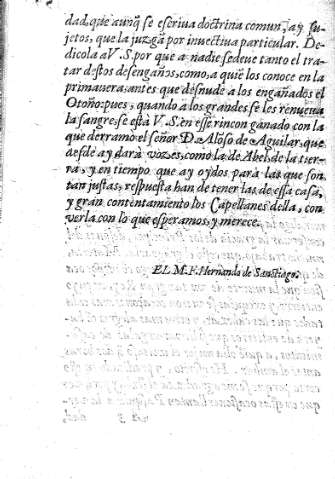 dad, que aunq̃ se escriua doctrina comun, ay su-
jetos, que la juzgã por inuectiua particular. De-
dicola a V.S. por que a nadie se deue tanto el tra-
tar destos desengaños, como, a quiẽ los conoce en la
primauera, antes que desnude a los engañados el
Otoño: pues, quando a los grandes se les renueua
la sangre, se està V.S. en esse rincon ganado con la
que derramò el señor D. Alõso de Aguilar, que
desde ay darà vozes, como la de Abel, de la tier-
ra, y en tiempo que ay oydos para las que son
tan justas, respuesta han de tener las de essa casa,
y gran contentamiento los Capellanes della, con
verla con lo que esperamos, y merece.
EL M. F. Hernando de Sanctiago.